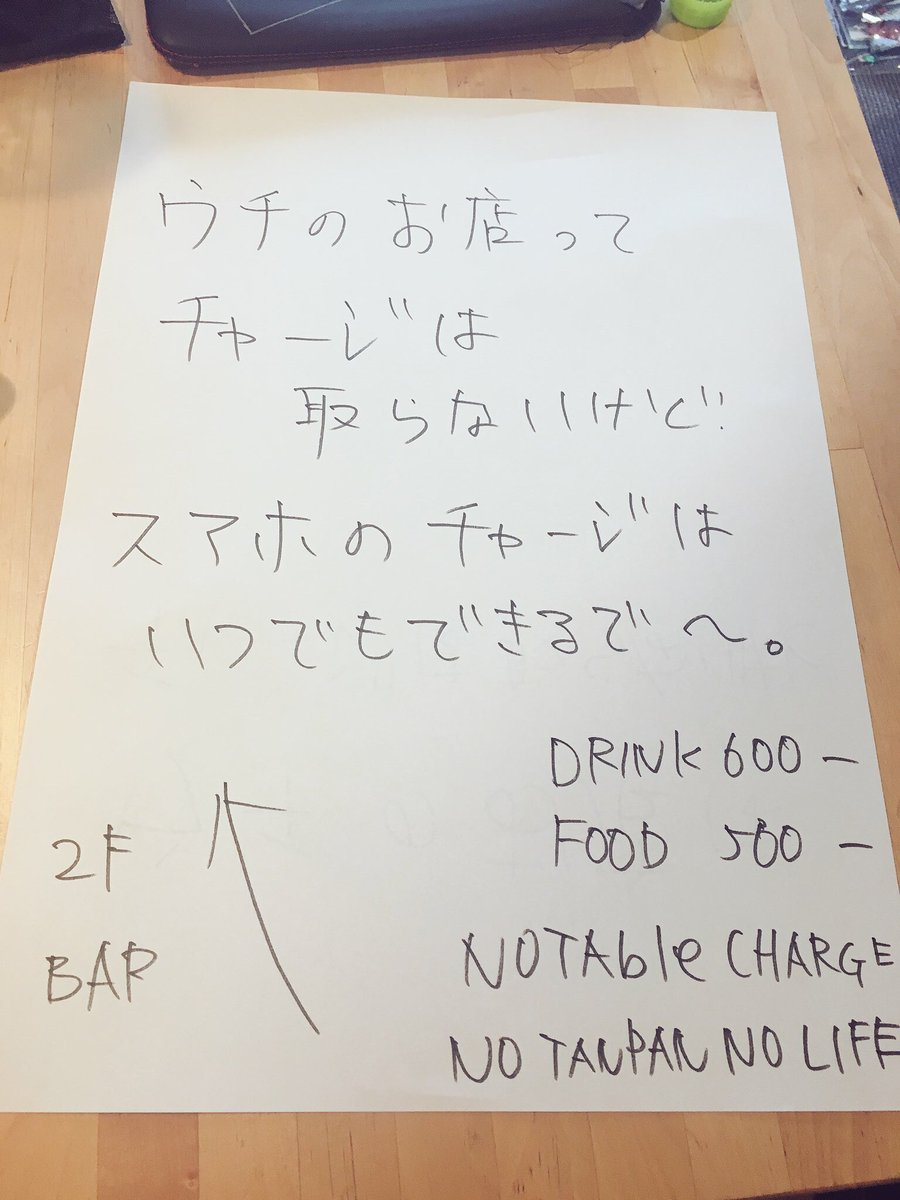 ウチのお店って
チャージは
取らないけど!!
スマホのチャージは
いつでもできるで〜。
DRINK 600 —
FOOD 500 —
2F
BAR
NO TAble CHARGE
NO TANPAN NO LIFE